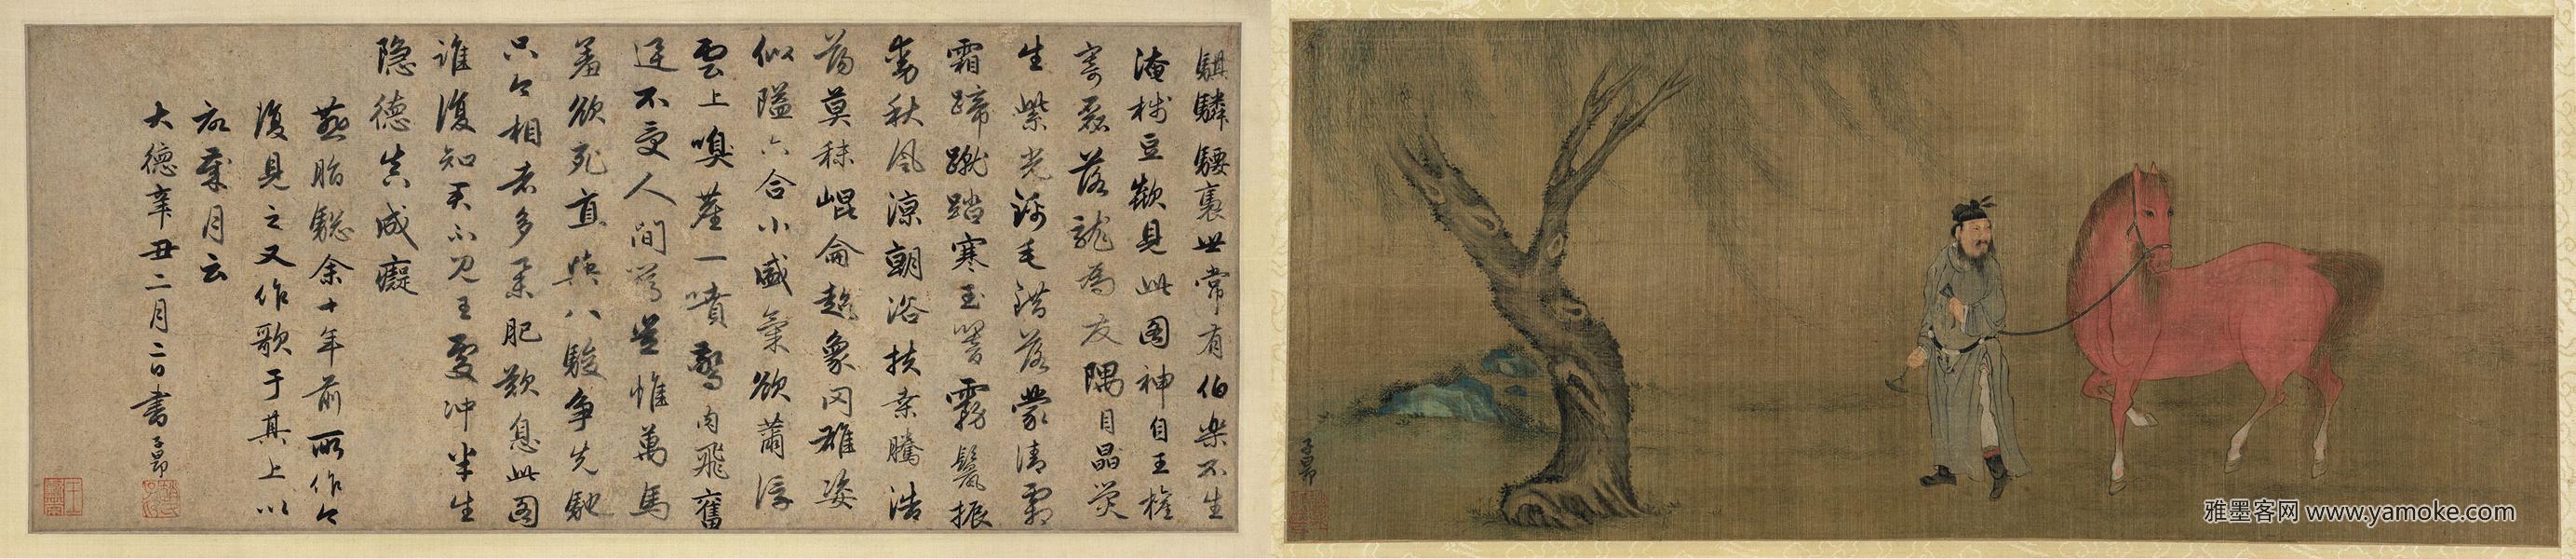 騏驎騕褭世常有伯樂不生
淹棧豆歎見此圖神自王權
奇磊落龍為友隅目晶熒
生紫光踠毛錯落蒙清霜
霜蹄蹴踏寒玉響霧鬣振
動秋風涼朝浴扶桑騰浩
蕩莫秣崐崙超象罔雄姿
似隘六合小盛氣欲蕭浮
雲上嗅塵一噴驚肉飛奮
迅不受人間豈惟萬馬
羞欲死直與八駿爭先馳
只今相者多舉肥歎息此圖
誰復知君不見王處沖半生
隱德真成癡
燕脂驄余十年前所作今
復見之又作歌于其上以
記歲月云
大德辛丑二月二日書子昂
子昂
雅墨客网 www.yamoke.com